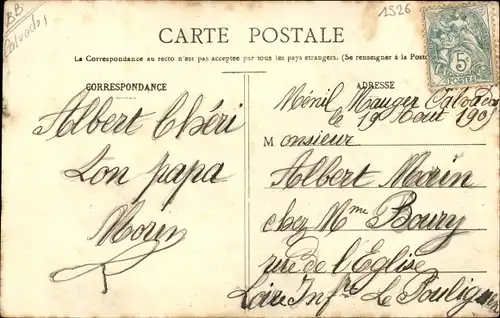 BB
Calvados
1526
CARTE POSTALE
La Correspondance au recto n'est pas acceptée par tous les pays étrangers. (Se renseigner à la Poste
5c
POSTES
CORRESPONDANCE
ADRESSE
Albert Chéri
Ton papa
Morin
Ménil Mauger Calvados
le 19 Aout 190
Monsieur
Albert Morin
chez Mme Boury
rue de l'Eglise
Loire Infre Le Pouliguen